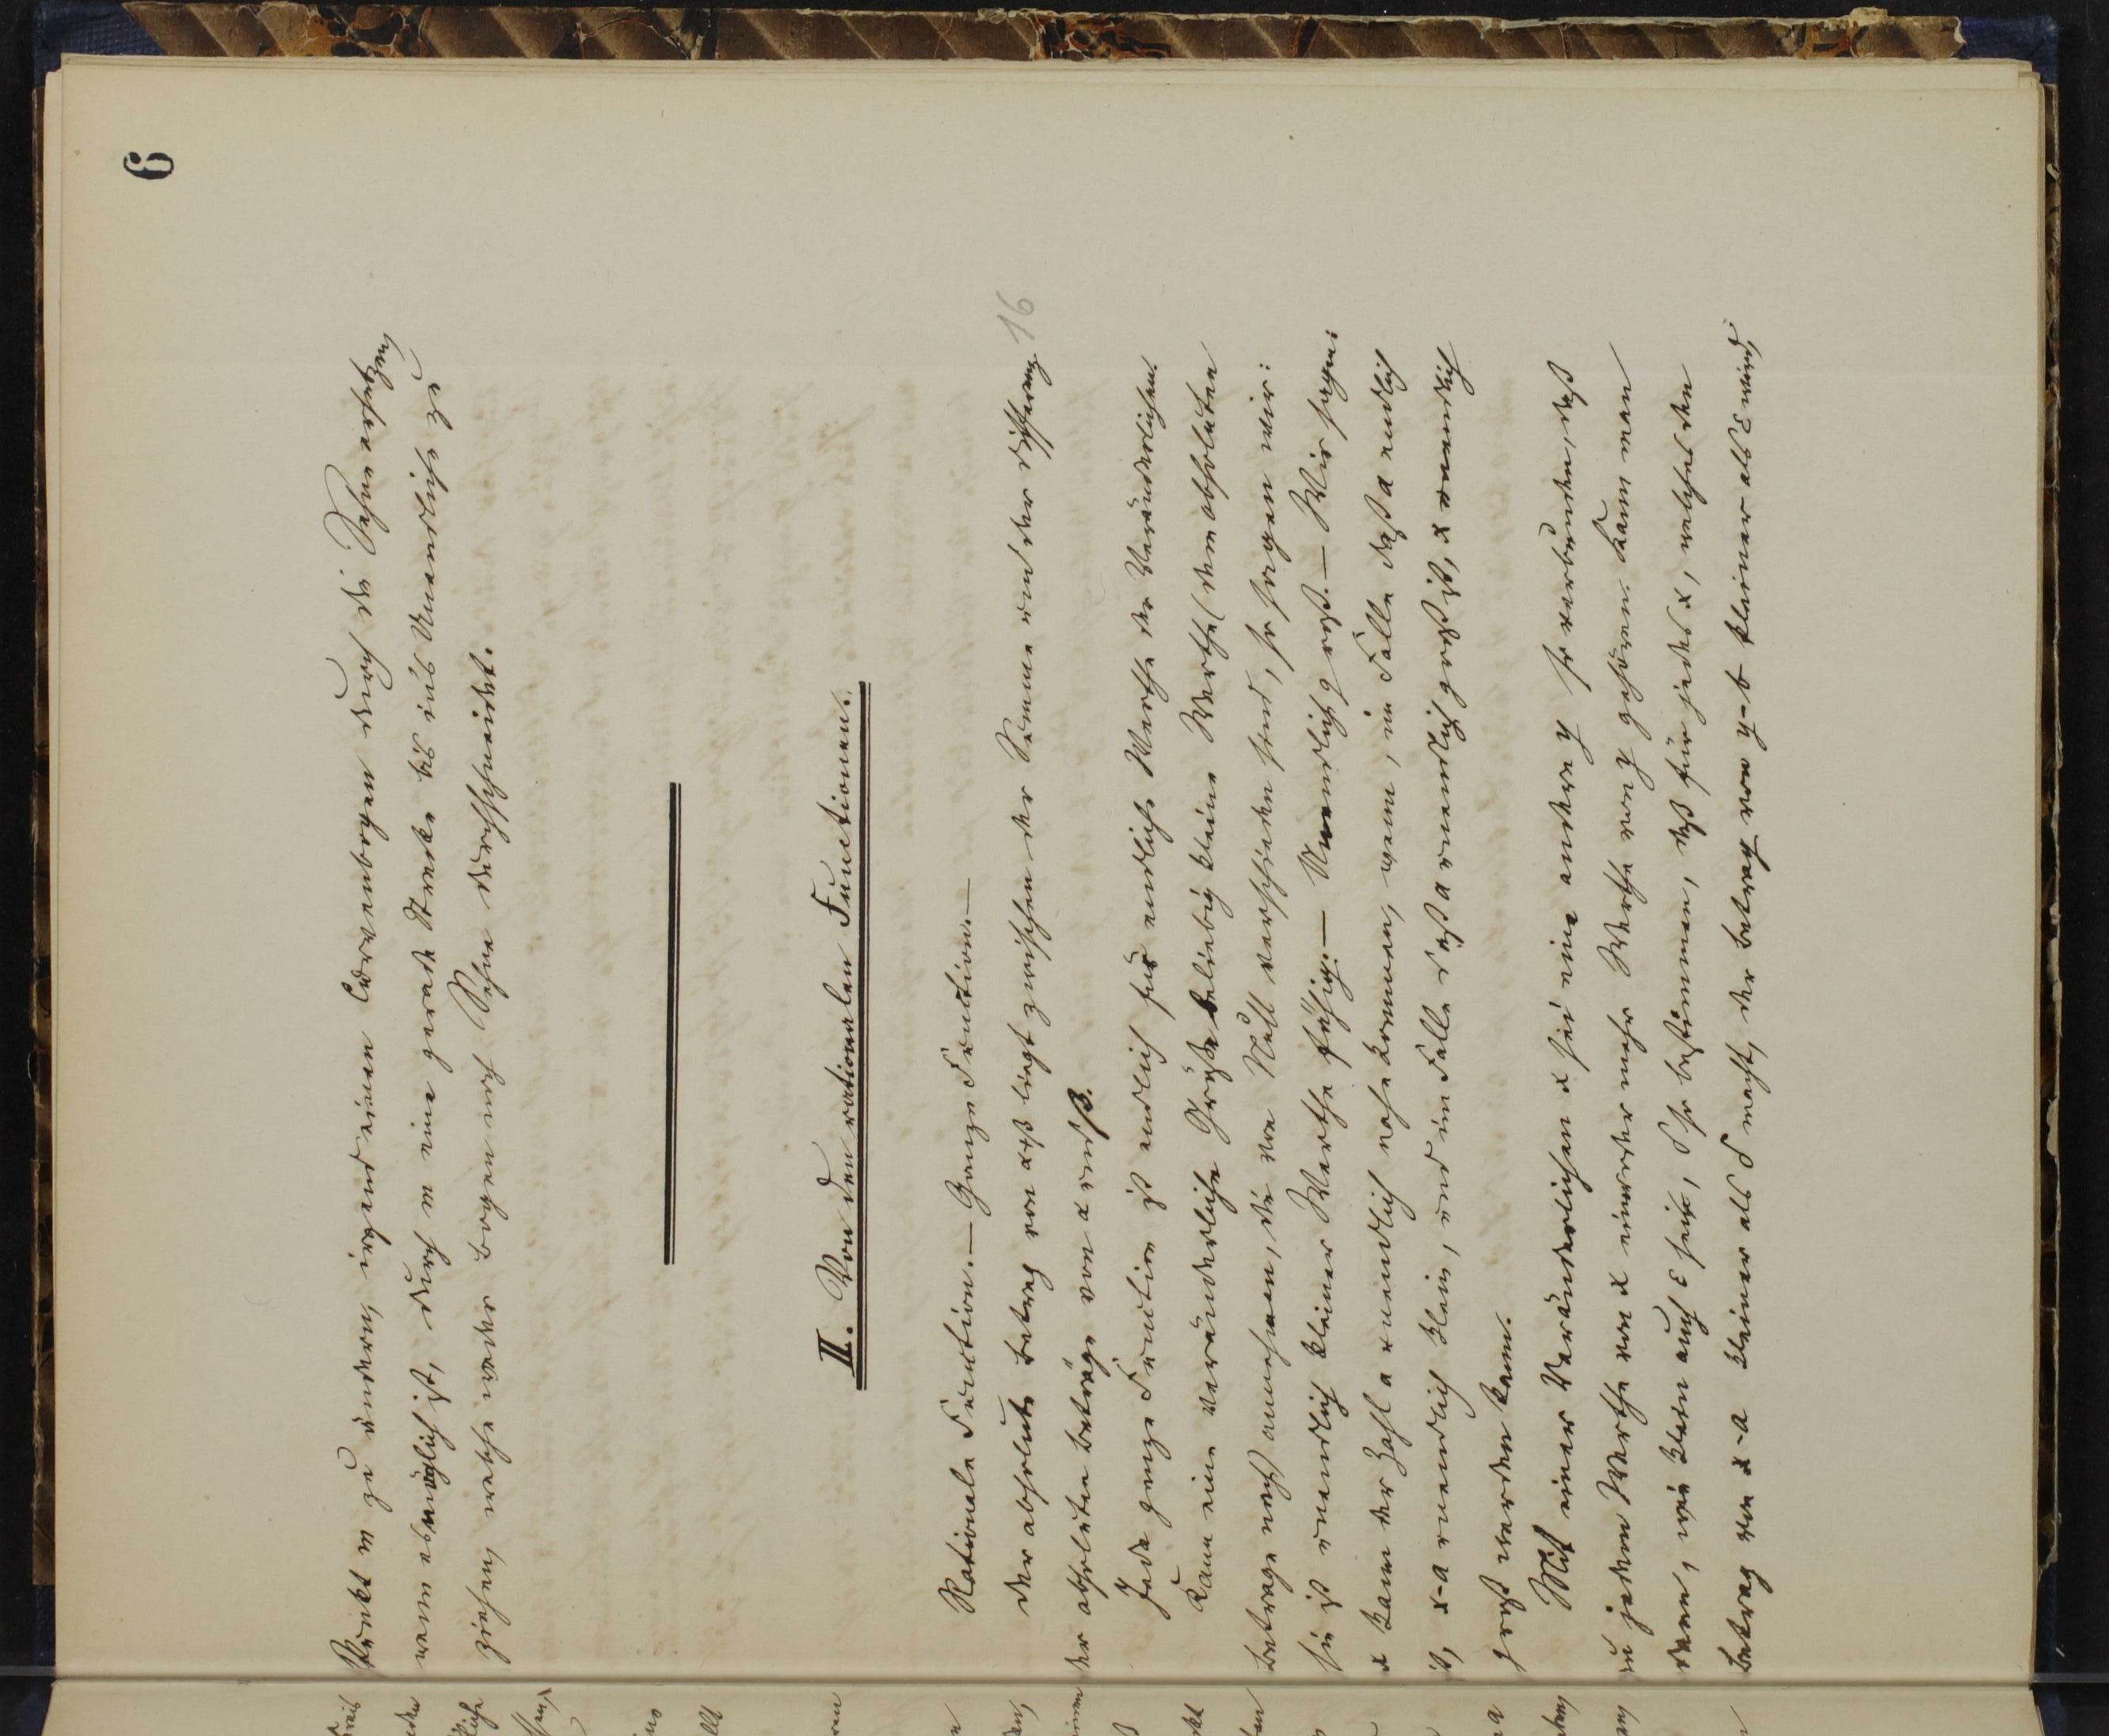 6
Punkt m zu ändern, irgend einen Curvenbogen durch die Sehne ersetzen,
wenn es möglich ist, durch m eine gerade Strecke bis ins Unendliche zu
ziehen, welche weder Bogen noch Sehne durchschneidet.
II. Von den rationalen Functionen.
Rationale Function. — Ganze Function. —
Der absolute Betrag von α+β liegt zwischen der Summe und der Differenz
16
der absoluten Beträge von α und β.
Jede ganze Function ist endlich für endliche Werthe der Veränderlichen.
Kann eine veränderliche Größe beliebig kleine Werthe (dem absoluten
Betrage nach) annehmen, die von Null verschieden sind, so sagen wir:
sie ist unendlich kleiner Werthe fähig. — Unendlich groß. — Wir sagen:
x kann der Zahl a unendlich nahe kommen, wenn, im Falle daß a endlich
ist, x-a unendlich klein, und im Falle daß a unendlich groß ist, x unendlich
groß werden kann.
Mit einer Veränderlichen x sei eine andere y so verbunden, daß
zu jedem Werthe von x ein oder mehr Werthe von y gehören. Kann man
dann, wie klein auch ε sei, δ so bestimmen, daß für jedes x, welches den
Betrag von x-a kleiner als δ macht, der Betrag von y-b kleiner als ε wird,